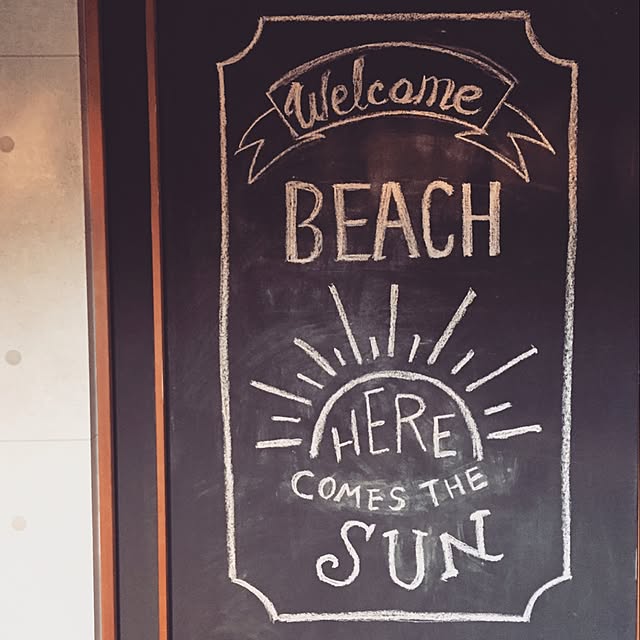 Welcome
BEACH
HERE
COMES THE
SUN